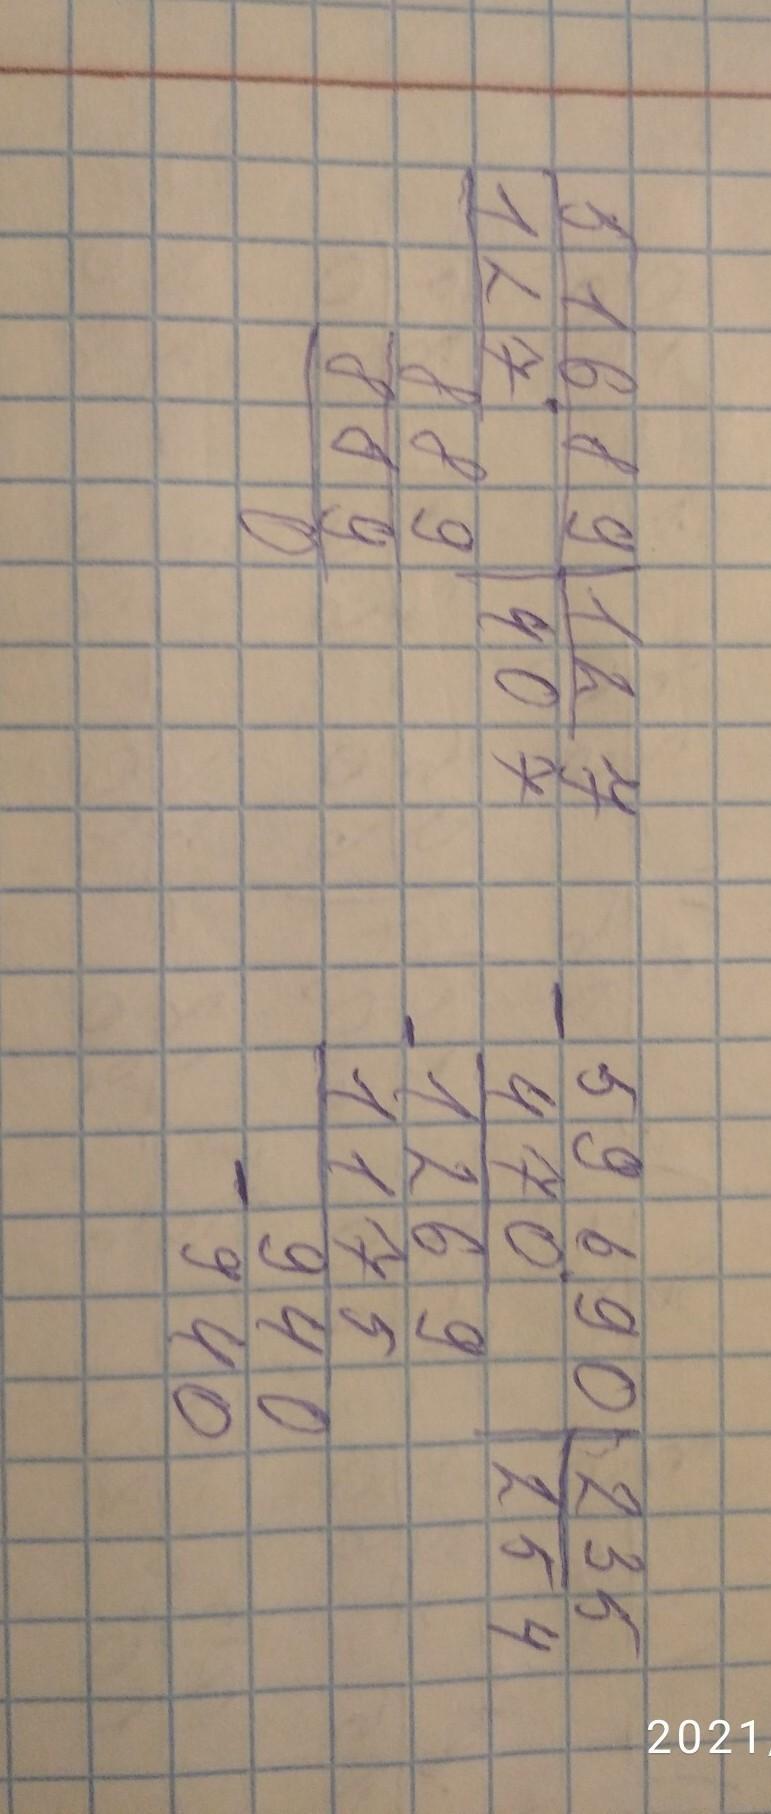 51689 127
127 407
889
889
0
- 59690 235
470 254
- 1269
1175
- 940
940
2021/